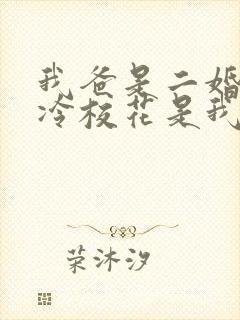 我爸是二婚
冷校花是我
荣沐汐